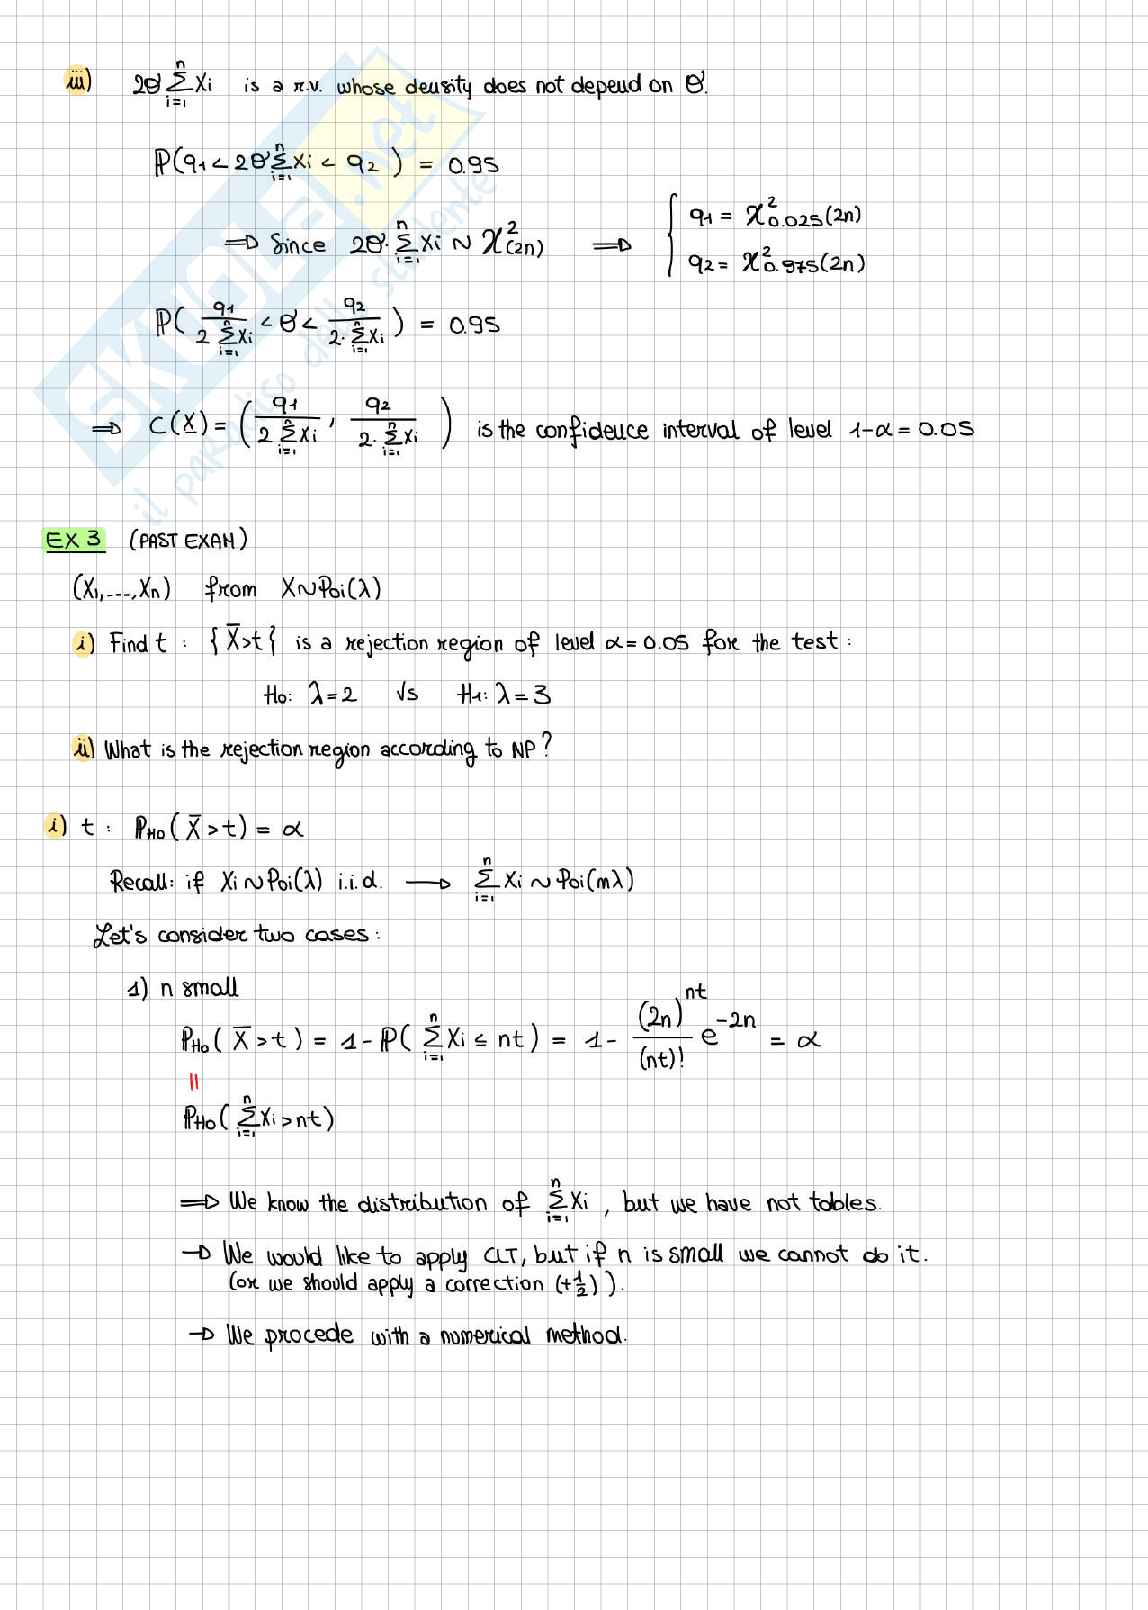 iii) 2θ Σ_{i=1}^{n} Xi is a r.v. whose density does not depend on θ.
P(q1 < 2θ Σ_{i=1}^{n} Xi < q2) = 0.95
⇒ Since 2θ· Σ_{i=1}^{n} Xi ~ χ²(2n) ⇒ { q1 = χ²_{0.025}(2n)
q2 = χ²_{0.975}(2n)
P( q1 / (2 Σ_{i=1}^{n} Xi) < θ < q2 / (2· Σ_{i=1}^{n} Xi) ) = 0.95
⇒ C(X) = ( q1 / (2 Σ_{i=1}^{n} Xi) , q2 / (2· Σ_{i=1}^{n} Xi) ) is the confidence interval of level 1-α = 0.05
EX 3 (PAST EXAM)
(X1,---,Xn) from X~Poi(λ)
i) Find t : {X̄>t} is a rejection region of level α=0.05 for the test :
H0: λ=2 Vs H1: λ=3
ii) What is the rejection region according to NP?
i) t : P_{H0}(X̄>t) = α
Recall: if Xi~Poi(λ) i.i.d. → Σ_{i=1}^{n} Xi ~ Poi(nλ)
Let's consider two cases :
1) n small
P_{H0}(X̄>t) = 1-P( Σ_{i=1}^{n} Xi ≤ nt) = 1- (2n)^{nt} / (nt)! e^{-2n} = α
=
P_{H0}( Σ_{i=1}^{n} Xi > nt)
⇒ We know the distribution of Σ_{i=1}^{n} Xi , but we have not tables.
→ We would like to apply CLT, but if n is small we cannot do it.
(or we should apply a correction (+½)).
→ We procede with a numerical method.
SKUOLA.net
il paradiso dello studente